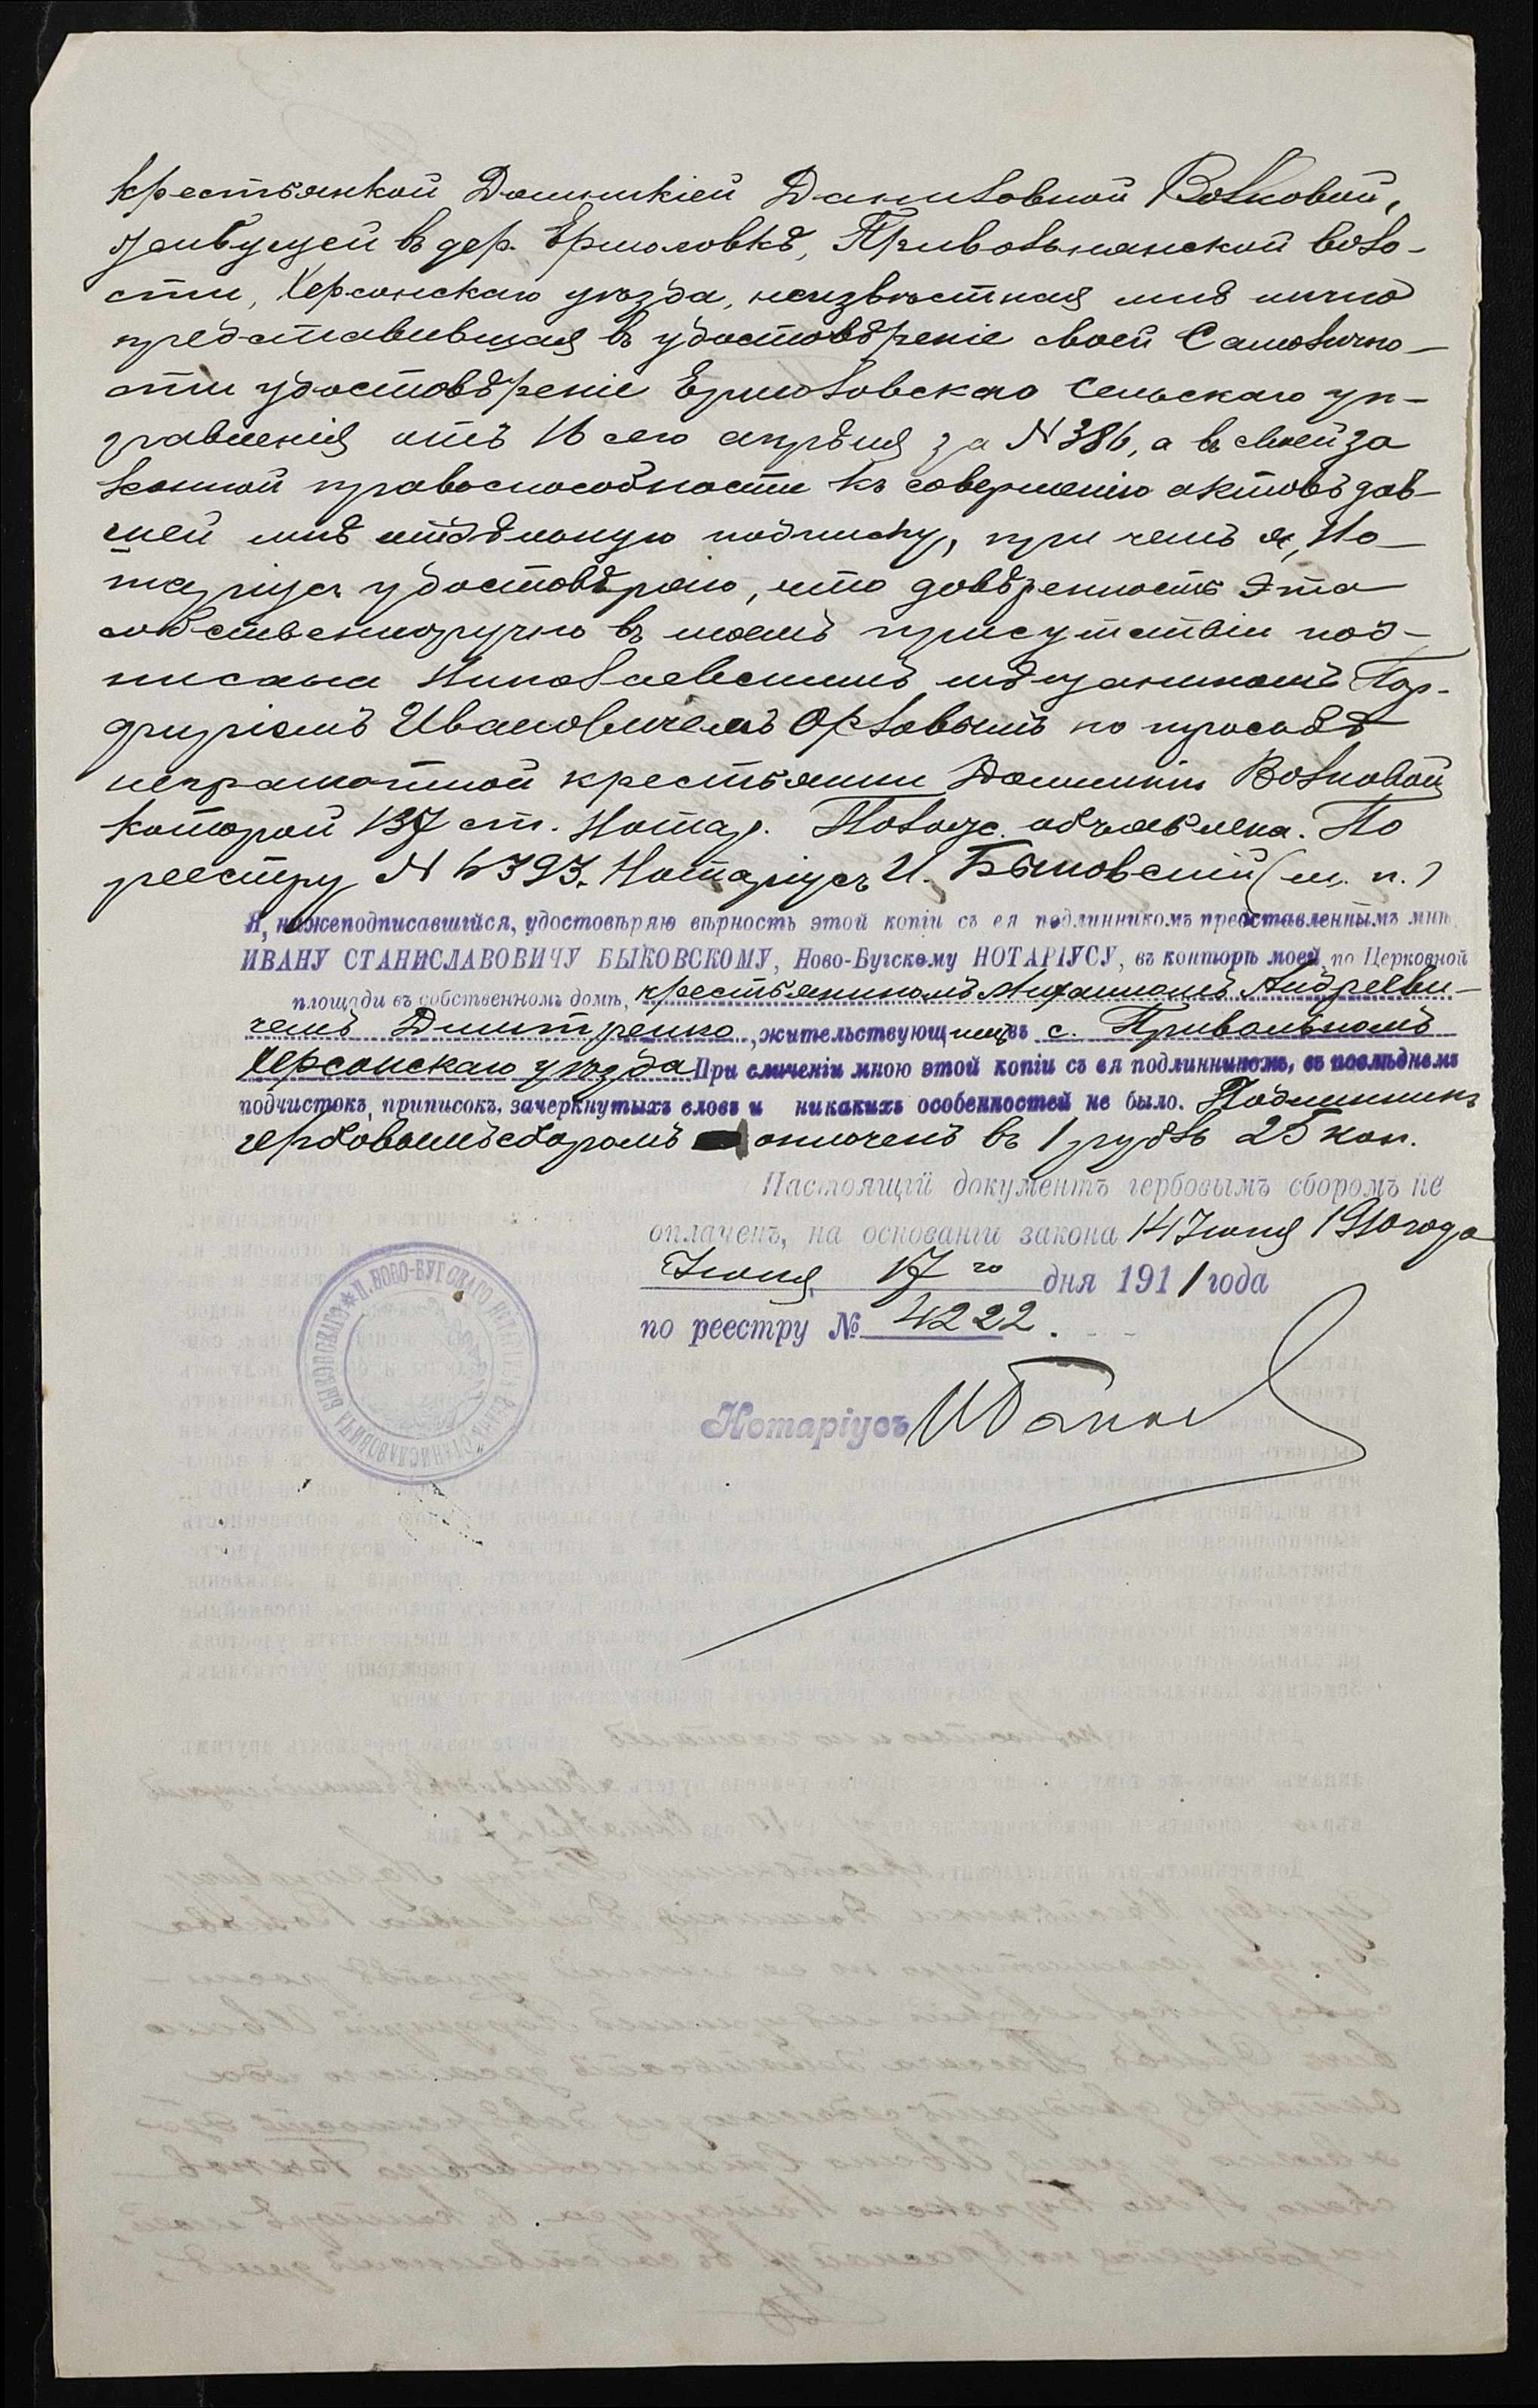 крестьянкой Домникіей Даниловной Волковой,
живущей въ дер. Ермоловкѣ, Привольнянской воло-
сти, Херсонскаго уѣзда, неизвѣстная мнѣ лично
представившая въ удостовѣреніе своей самолично-
сти удостовѣреніе Ермоловскаго сельскаго уп-
равленія отъ 16 сего апрѣля за N 386, а въ своей за
конной правоспособности къ совершенію актовъ дав-
шей мнѣ отдѣльную подписку, при чемъ я, Но-
таріусъ удостовѣряю, что довѣренность эта
собственноручно въ моемъ присутствіи под-
писана Николаевскимъ мѣщаниномъ Пор-
фиріемъ Ивановичемъ Орловымъ по просьбѣ
неграмотной крестьянки Домникіи Волковой
которой 137 ст. Нотар. Полож. объявлена. По
реестру N 4393. Нотаріусъ И. Быковскій (м. п.)
Я, нижеподписавшійся, удостовѣряю вѣрность этой копіи съ ея подлинникомъ представленнымъ мнѣ
ИВАНУ СТАНИСЛАВОВИЧУ БЫКОВСКОМУ, Ново-Бугскому НОТАРІУСУ, въ конторѣ моей по Церковной
площади въ собственномъ домѣ, крестьяниномъ Михаиломъ Андрееви-
чемъ Дмитренко, жительствующимъ въ с. Привольномъ
Херсонскаго уѣзда При сличеніи мною этой копіи съ ея подлинникомъ, въ послѣднемъ
подчистокъ, приписокъ, зачеркнутыхъ словъ и никакихъ особенностей не было. Подлинникъ
гербовымъ сборомъ оплоченъ въ 1 рубль 25 коп.
Настоящій документъ гербовымъ сборомъ не
оплаченъ, на основаніи закона 14 Іюня 1910 года
Іюня 17 го дня 1911 года
по реестру № 4222.
Нотаріусъ